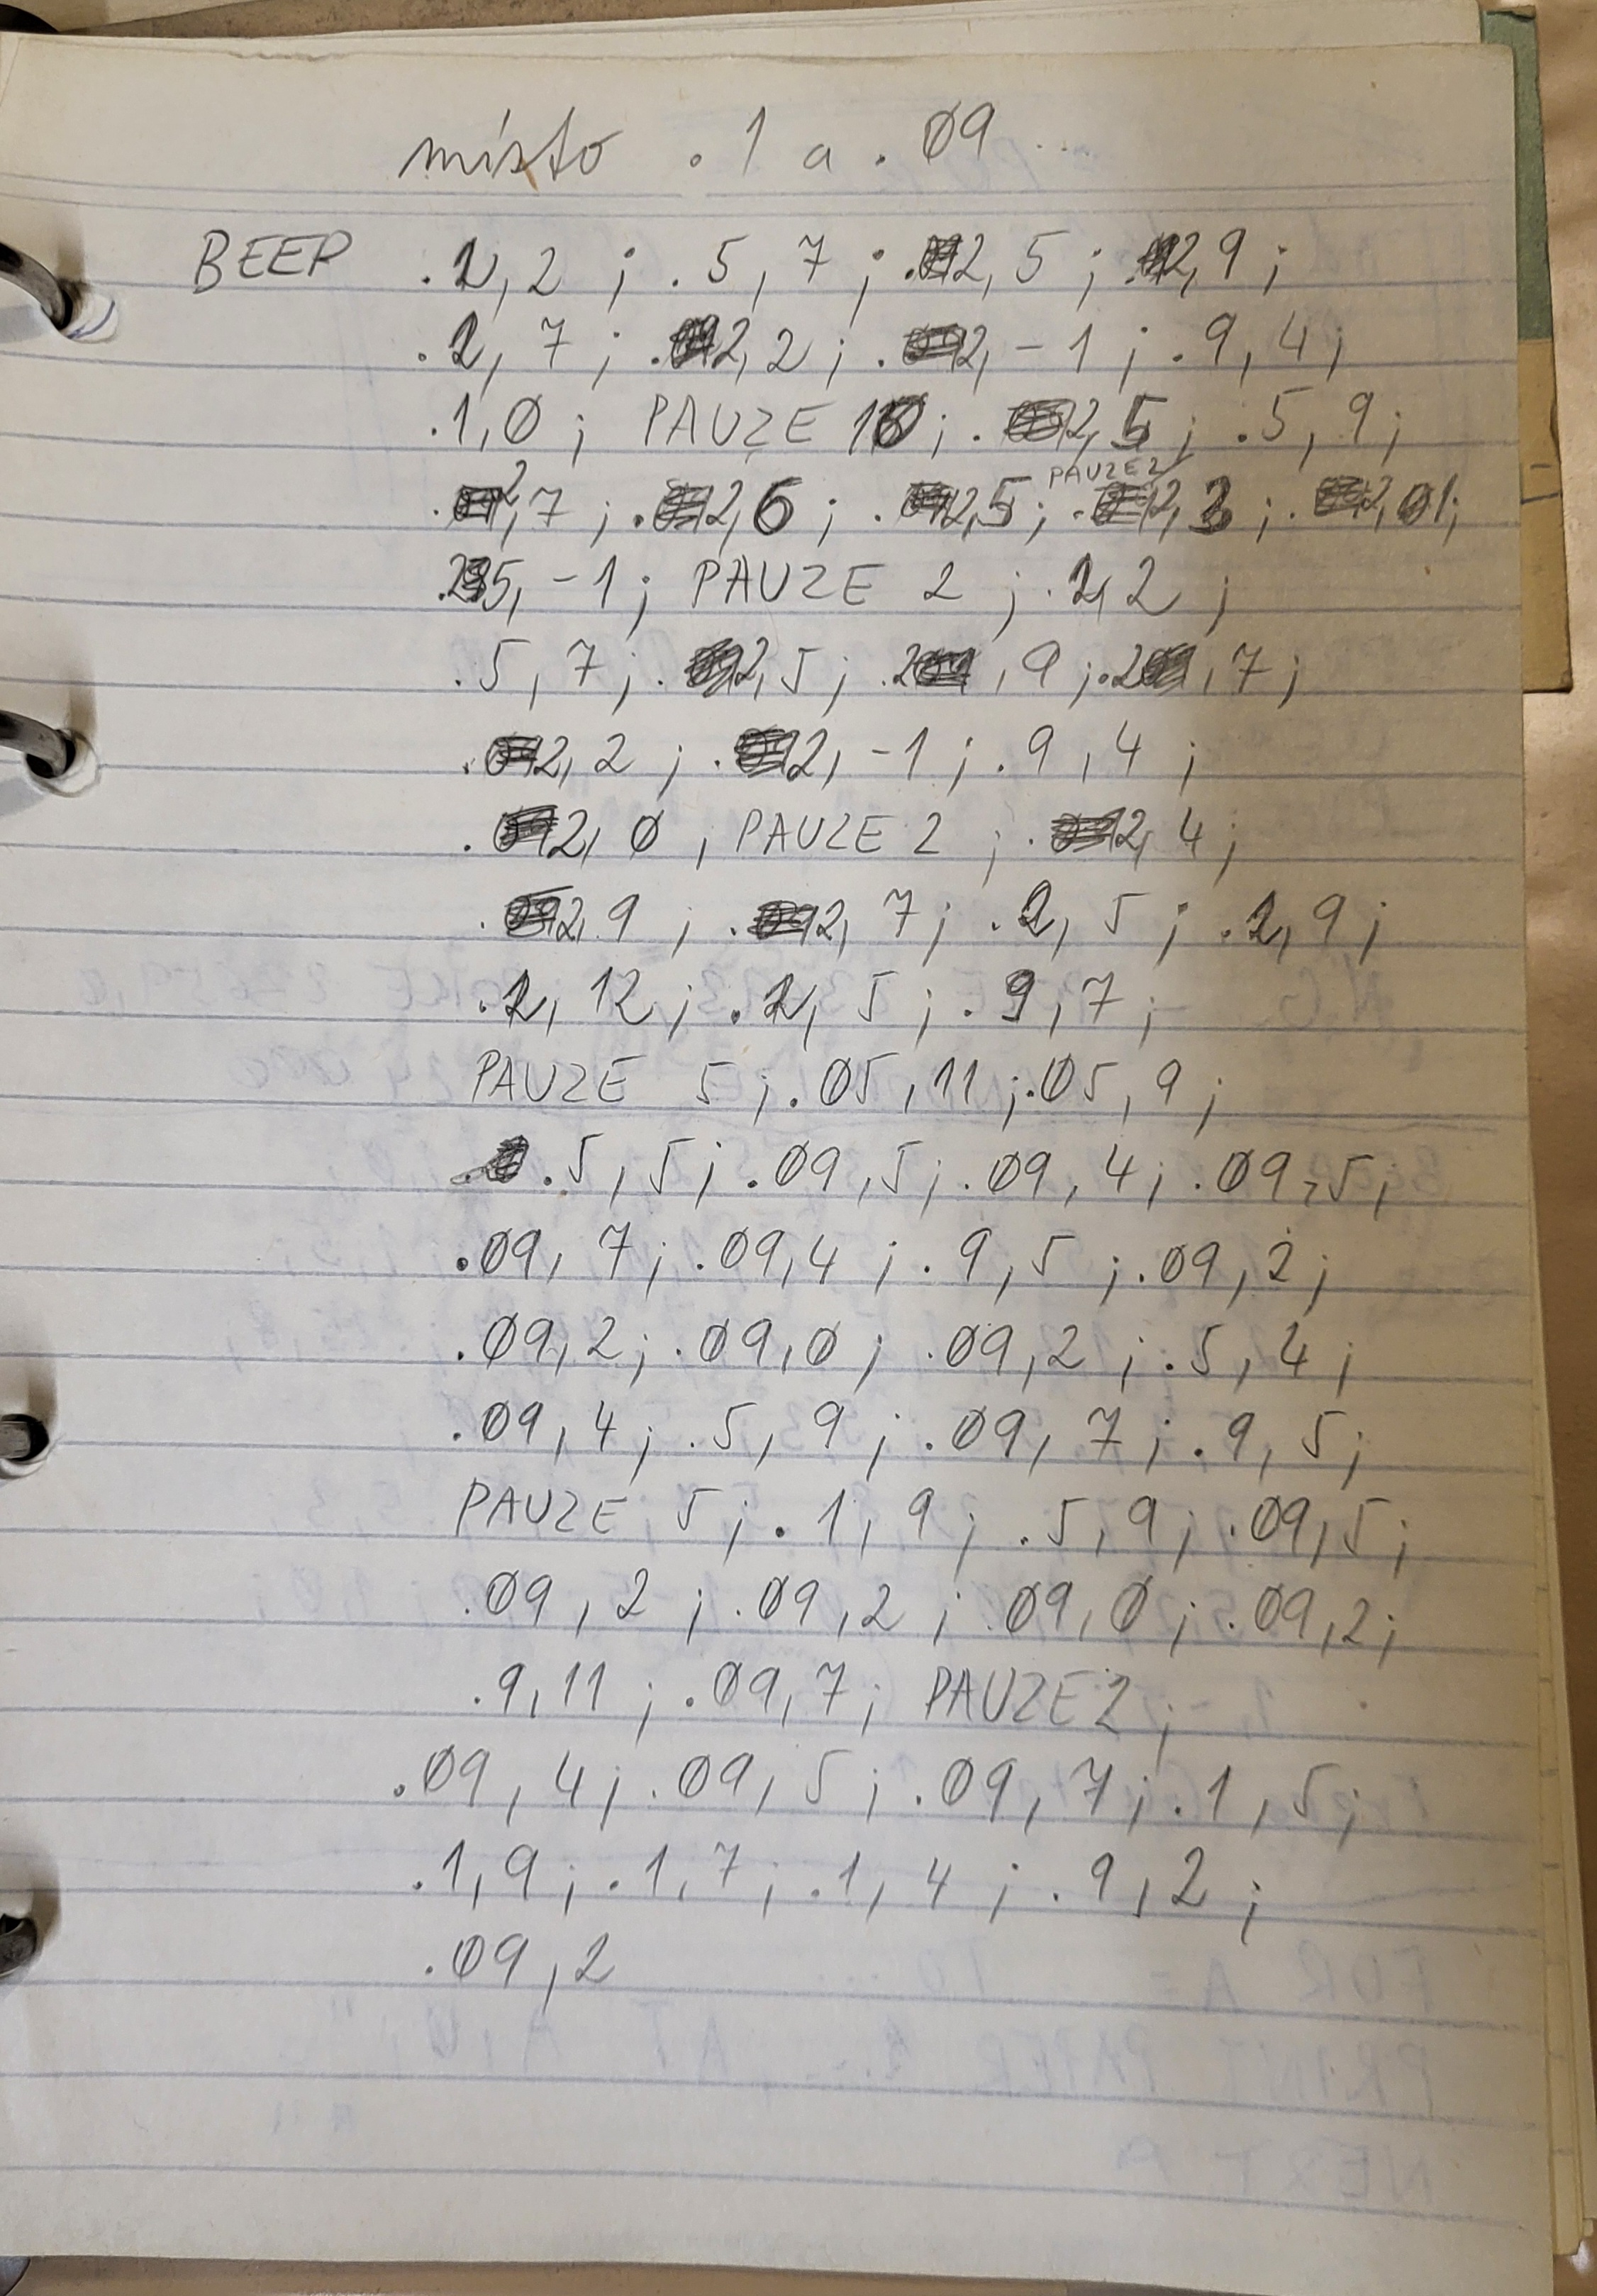 místo .1 a .09 ...
BEEP .2,2 ; .5,7 ; .2,5 ; .2,9 ;
.2,7 ; .2,2 ; .2,-1 ; .9,4 ;
.1,0 ; PAUZE 10 ; .2,5 ; .5,9 ;
PAUZE 2
.2,7 ; .2,6 ; .2,5 ; .2,3 ; .2,01 ;
.25,-1 ; PAUZE 2 ; .2,2 ;
.5,7 ; .2,5 ; .2,9 ; .2,7 ;
.2,2 ; .2,-1 ; .9,4 ;
.2,0 , PAUZE 2 ; .2,4 ;
.2,9 ; .2,7 ; .2,5 ; .2,9 ;
.2,12 ; .2,5 ; .9,7 ;
PAUZE 5 ; .05,11 ; .05,9 ;
.5,5 ; .09,5 ; .09,4 ; .09,5 ;
.09,7 ; .09,4 ; .9,5 ; .09,2 ;
.09,2 ; .09,0 ; .09,2 ; .5,4 ;
.09,4 ; .5,9 ; .09,7 ; .9,5 ;
PAUZE 5 ; .1,9 ; .5,9 ; .09,5 ;
.09,2 ; .09,2 ; .09,0 ; .09,2 ;
.9,11 ; .09,7 ; PAUZE 2 ;
.09,4 ; .09,5 ; .09,7 ; .1,5 ;
.1,9 ; .1,7 ; .1,4 ; .9,2 ;
.09,2